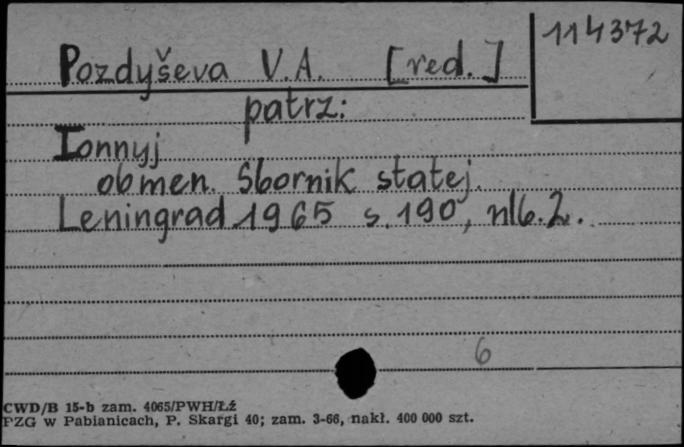 114372
Pozdyševa V.A. [red.]
patrz:
Ionnyj
obmen. Sbornik statej.
Leningrad 1965 s. 190, nlb. 2.
6
CWD/B 15-b zam. 4065/PWH/Łź
PZG w Pabianicach, P. Skargi 40; zam. 3-66, nakł. 400 000 szt.